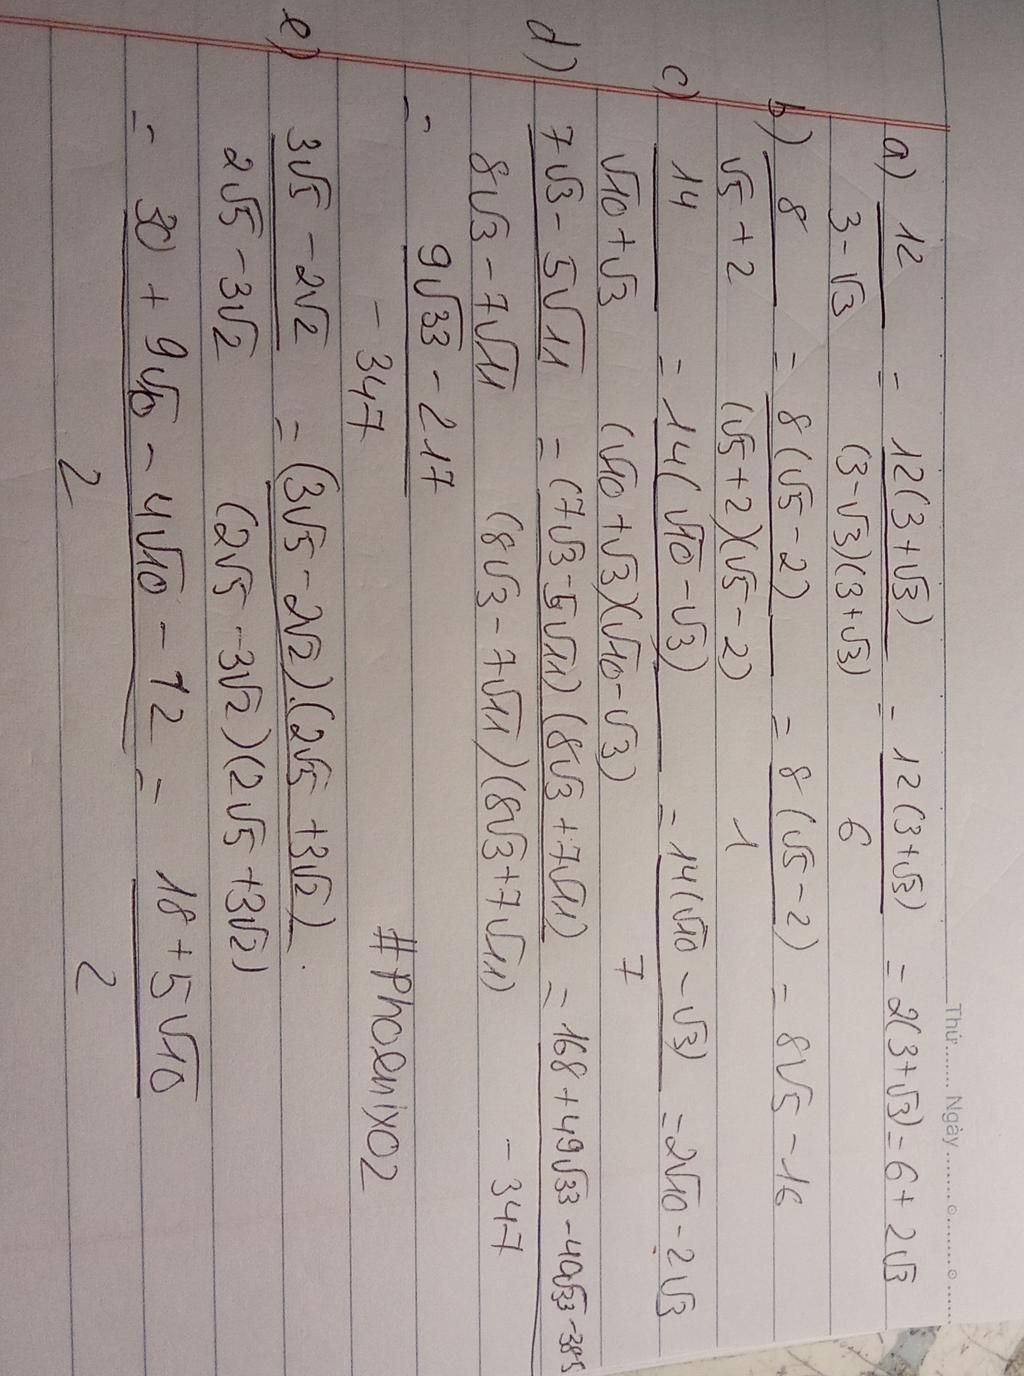 Thứ........ Ngày ........
a) 12/(3-√3) = 12(3+√3)/((3-√3)(3+√3)) = 12(3+√3)/6 = 2(3+√3) = 6+2√3
b) 8/(√5+2) = 8(√5-2)/((√5+2)(√5-2)) = 8(√5-2)/1 = 8√5-16
c) 14/(√10+√3) = 14(√10-√3)/((√10+√3)(√10-√3)) = 14(√10-√3)/7 = 2√10-2√3
d) (7√3-5√11)/(8√3-7√11) = (7√3-5√11)(8√3+7√11)/((8√3-7√11)(8√3+7√11)) = (168+49√33-40√33-385)/(-347)
= (9√33-217)/(-347)
#Phoenix02
e) (3√5-2√2)/(2√5-3√2) = (3√5-2√2).(2√5+3√2)/((2√5-3√2)(2√5+3√2)).
= (30+9√10-4√10-12)/2 = (18+5√10)/2